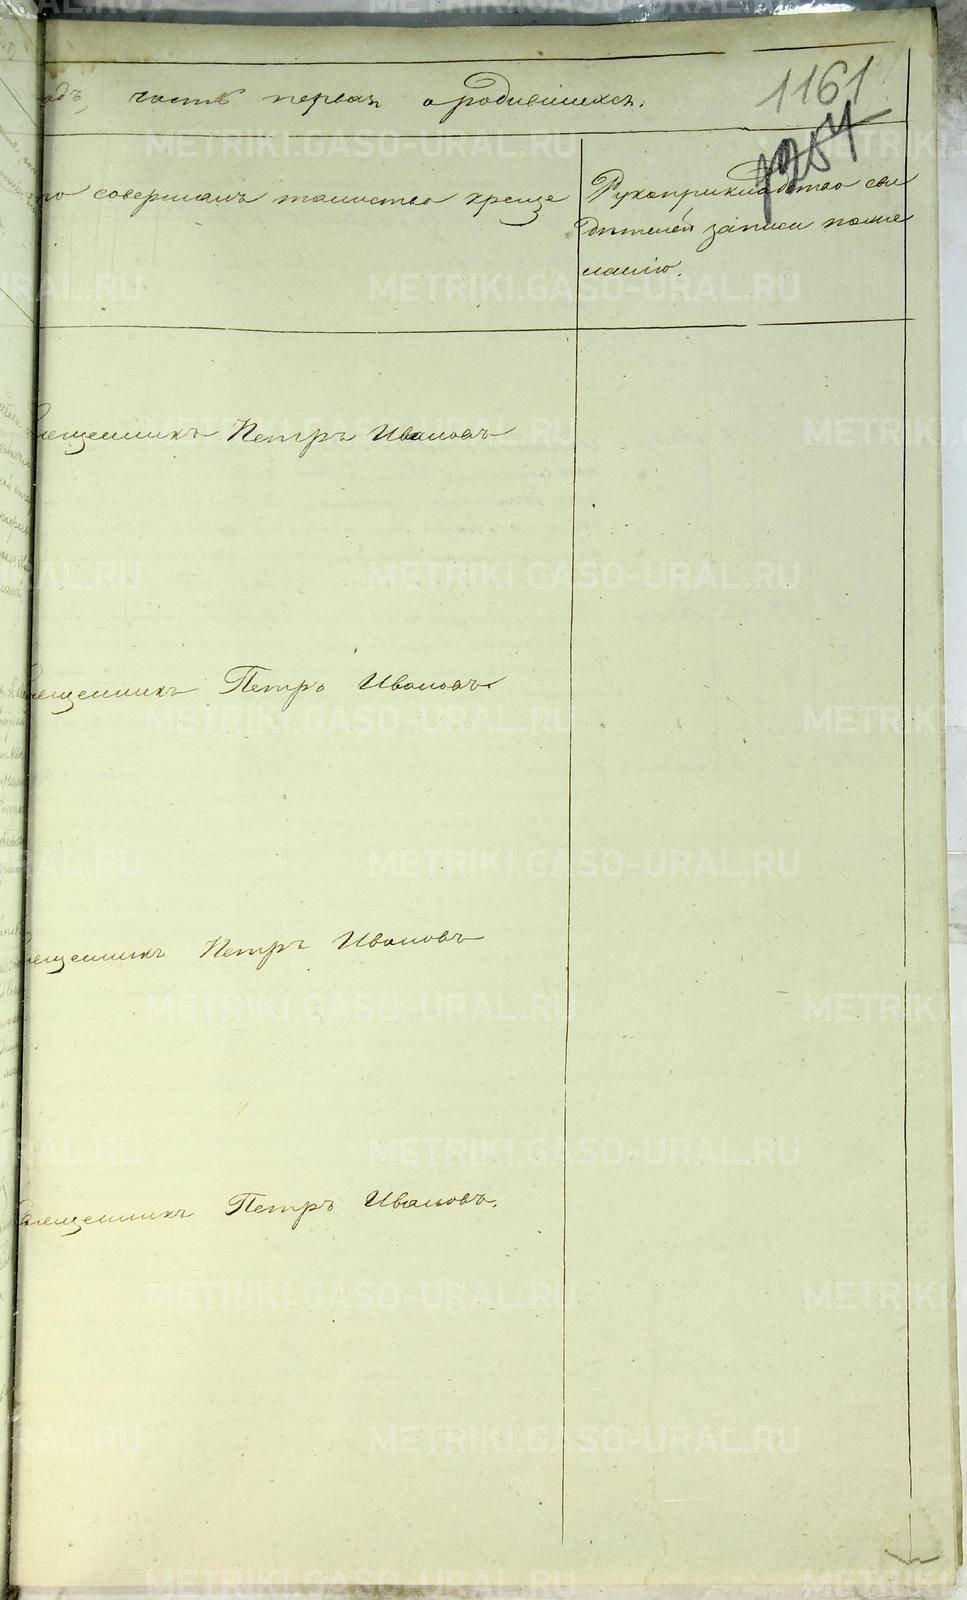 1161
одъ, часть первая о родившихся.
1257
то совершалъ таинство креще
Рукоприкладство сви
дѣтелей записи по же
ланію.
Священникъ Петръ Ивановъ
Священникъ Петръ Ивановъ
Священникъ Петръ Ивановъ
Священникъ Петръ Ивановъ.
METRIKI.GASO-URAL.RU